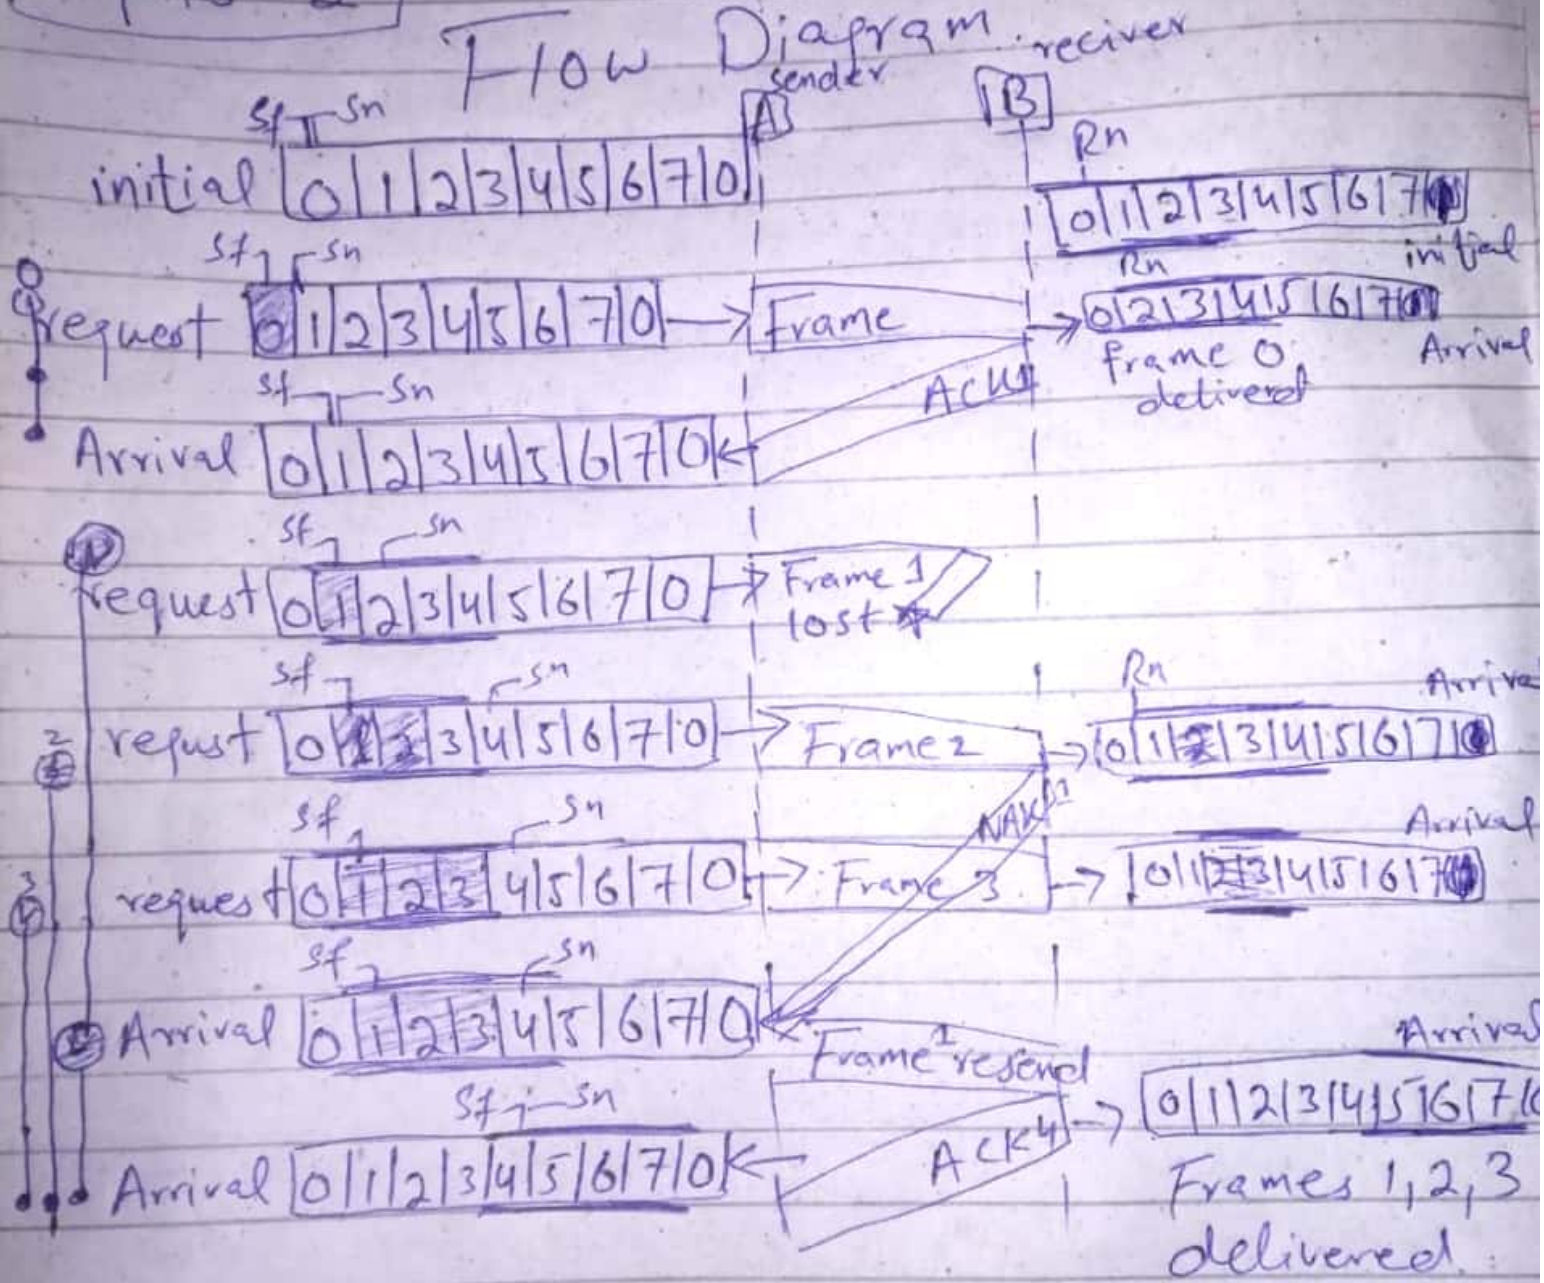 Flow Diagram
sender
reciver
A
B
Sf Sn
initial 0 1 2 3 4 5 6 7 0
Rn
0 1 2 3 4 5 6 7
initial
Sf Sn
request 0 1 2 3 4 5 6 7 0
Frame
Rn
0 2 3 4 5 6 7
Arrival
frame 0
delivered
ACK1
Sf Sn
Arrival 0 1 2 3 4 5 6 7 0
Sf Sn
request 0 1 2 3 4 5 6 7 0
Frame 1
lost
Sf Sn
requst 0 1 2 3 4 5 6 7 0
Frame 2
Rn
Arriva
0 1 2 3 4 5 6 7 0
2
NAK 1
Sf Sn
request 0 1 2 3 4 5 6 7 0
Frame 3
Arrival
0 1 2 3 4 5 6 7
3
Sf Sn
Arrival 0 1 2 3 4 5 6 7 0
Frame 1 resend
Arrival
0 1 2 3 4 5 6 7
Sf Sn
Arrival 0 1 2 3 4 5 6 7 0
ACK4
Frames 1,2,3
delivered.